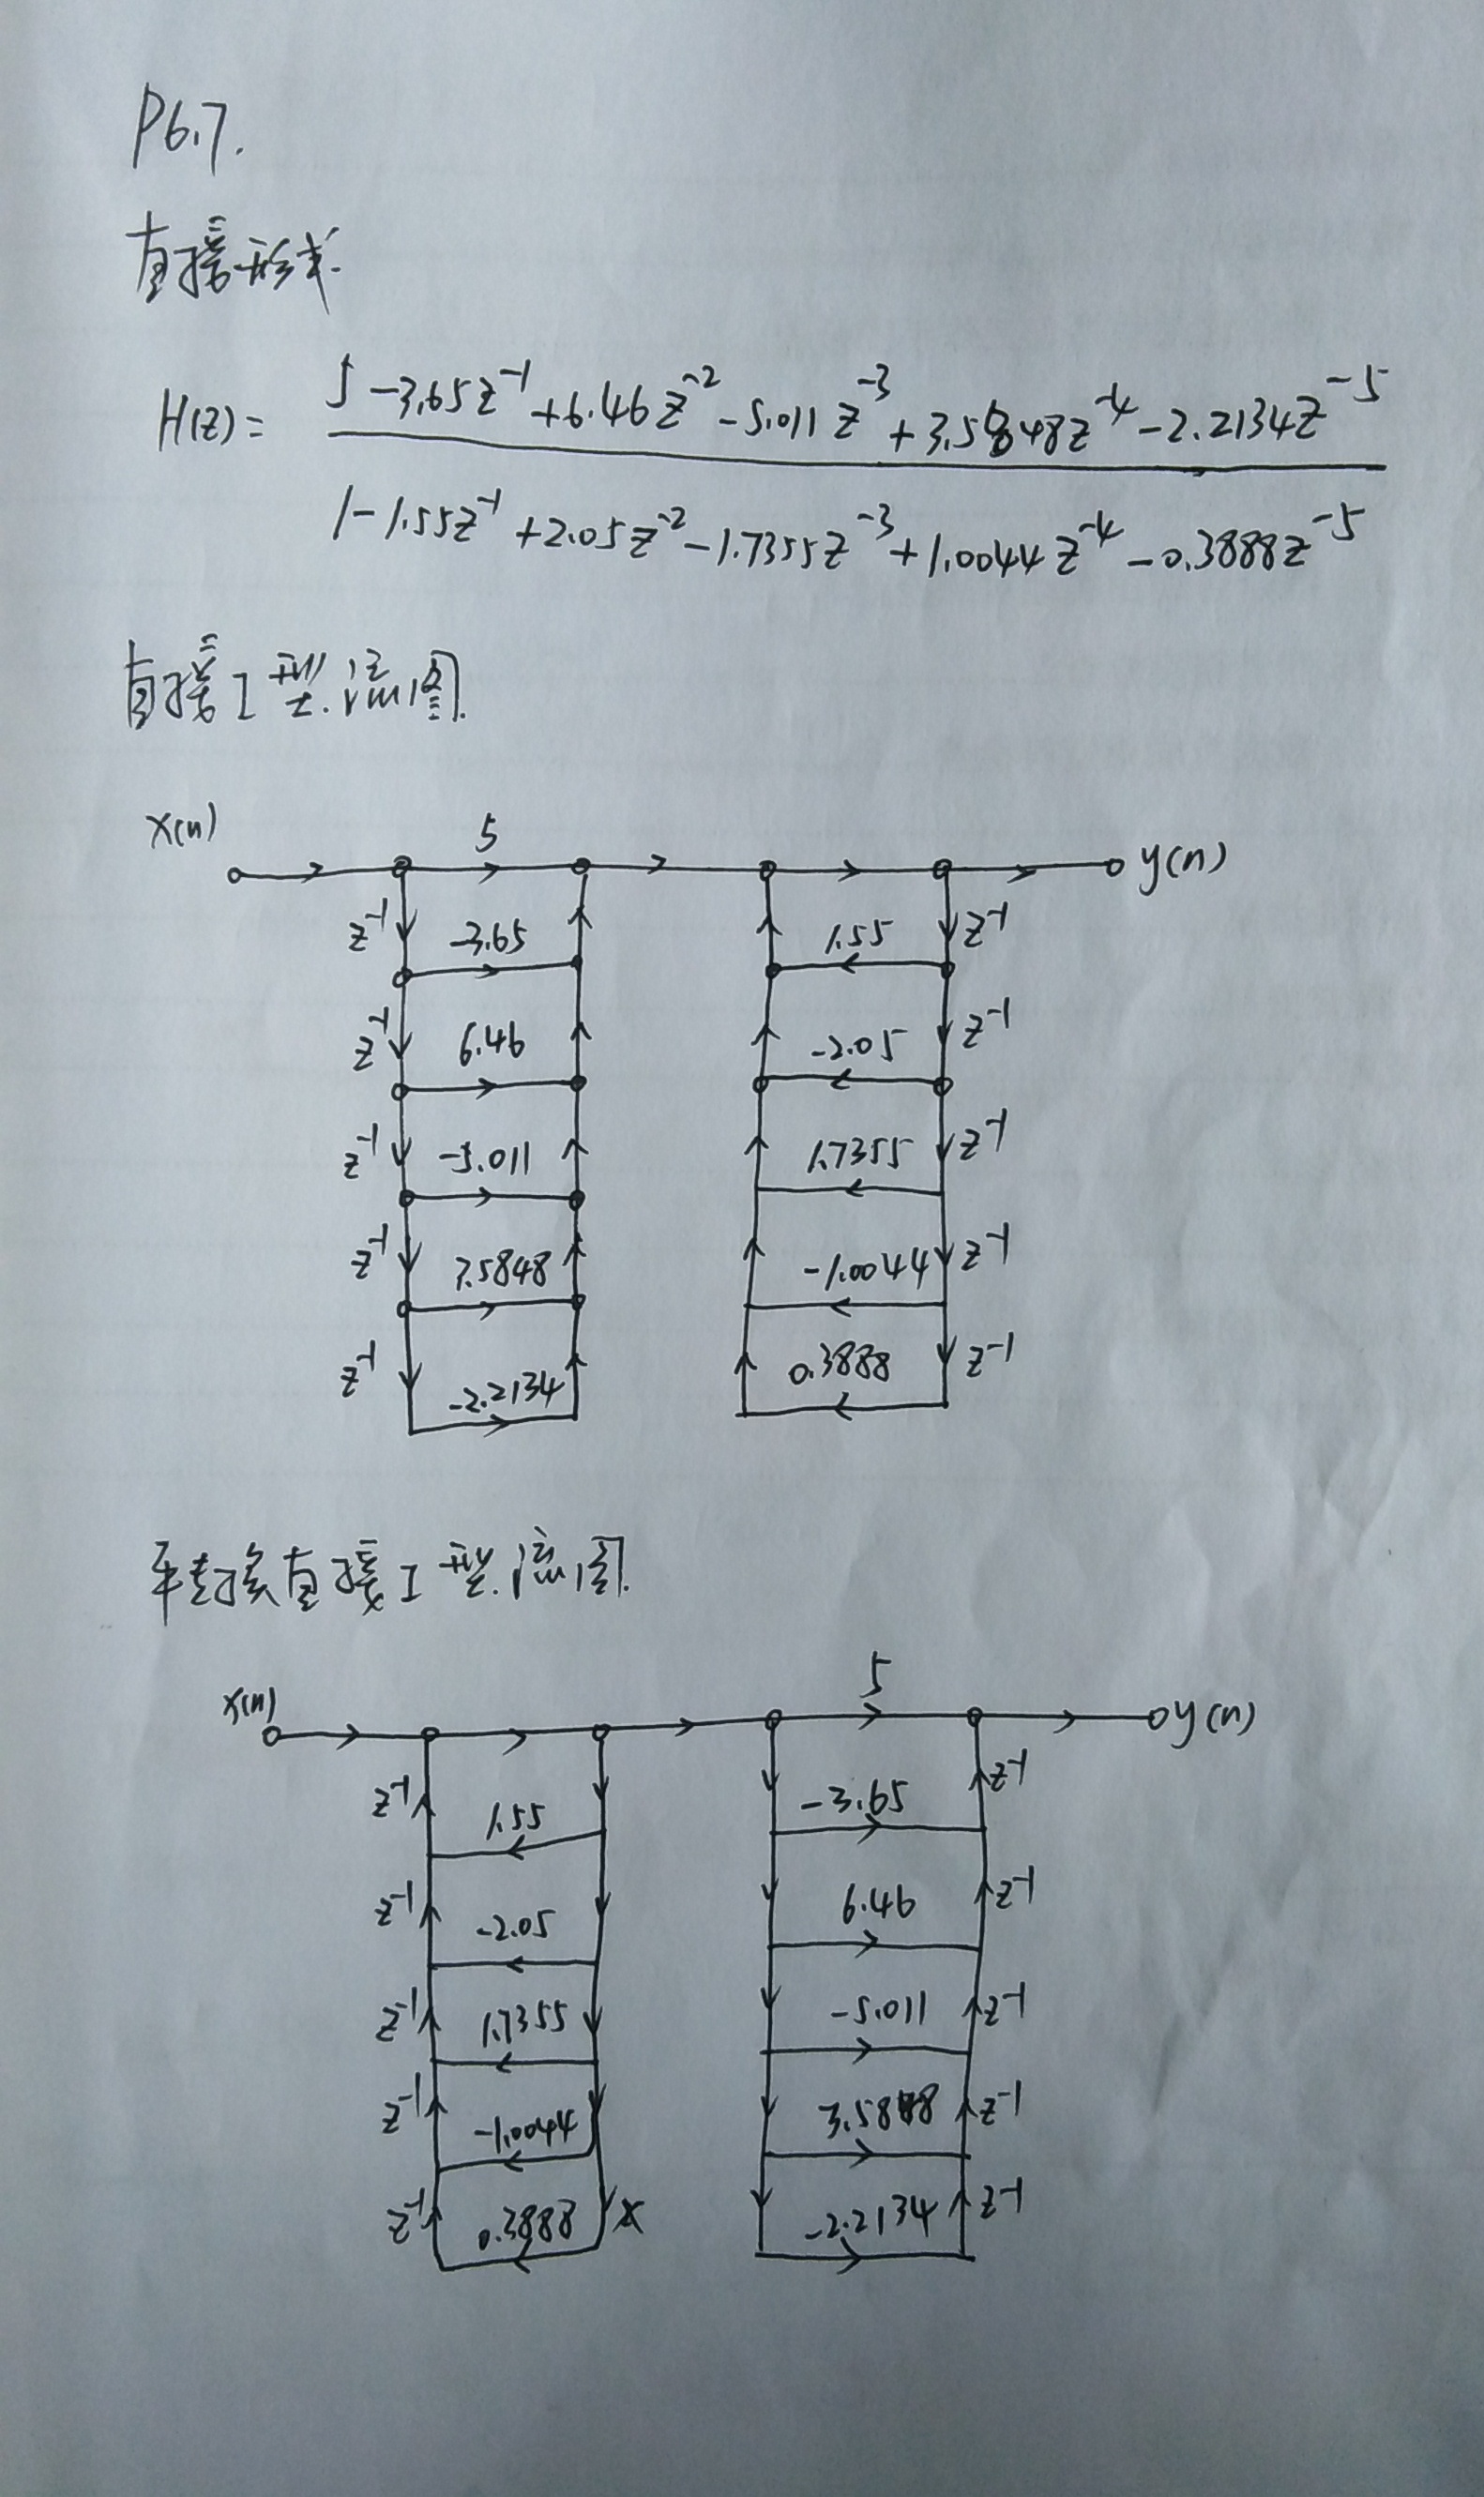 P6.7.
直接形式.
H(z) = 5 -3.65z^-1 +6.46z^-2 -5.011z^-3 +3.5848z^-4 -2.2134z^-5
1-1.55z^-1 +2.05z^-2 -1.7355z^-3 +1.0044z^-4 -0.3888z^-5
直接I型.流图.
x(n) 5 y(n)
z^-1 -3.65 1.55 z^-1
z^-1 6.46 -2.05 z^-1
z^-1 -5.011 1.7355 z^-1
z^-1 3.5848 -1.0044 z^-1
z^-1 -2.2134 0.3888 z^-1
转换直接I型.流图.
x(n) 5 y(n)
z^-1 1.55 -3.65 z^-1
z^-1 -2.05 6.46 z^-1
z^-1 1.7355 -5.011 z^-1
z^-1 -1.0044 3.5848 z^-1
z^-1 0.3888 -2.2134 z^-1